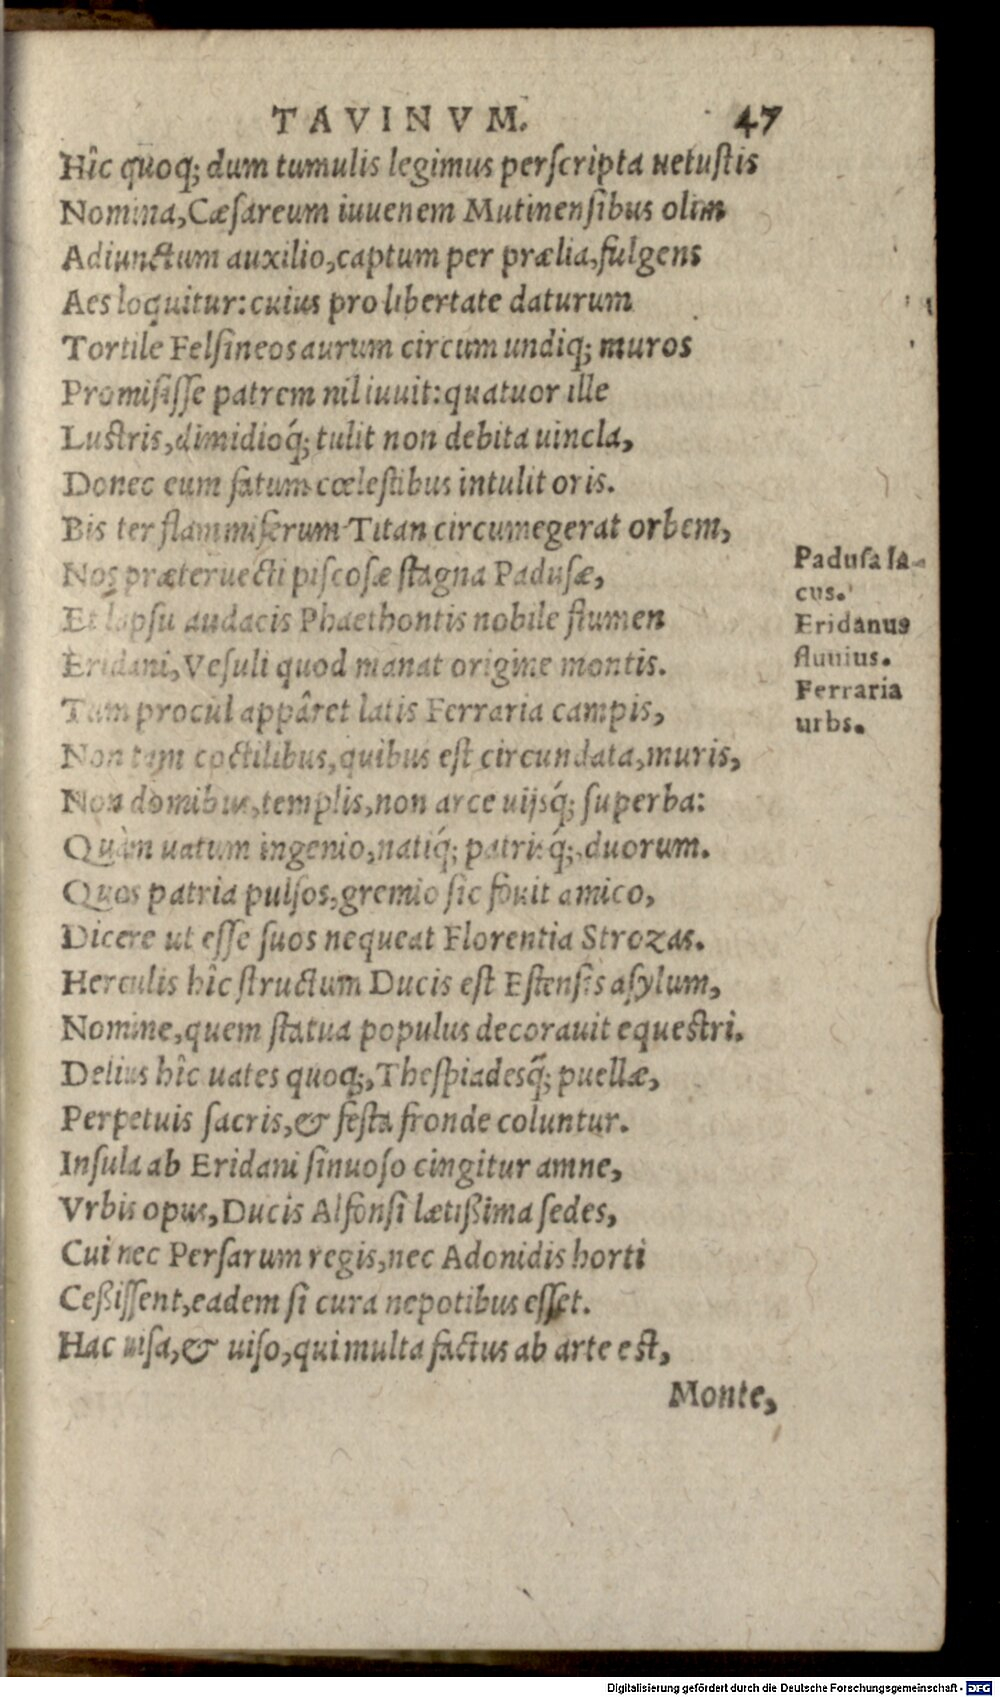 TAVINVM. 47
Hîc quoq; dum tumulis legimus perscripta uetustis
Nomina, Cæsareum iuuenem Mutinensibus olim
Adiunctum auxilio, captum per prælia, fulgens
Aes loquitur: cuius pro libertate daturum
Tortile Felsineos aurum circum undiq; muros
Promisisse patrem nil iuuit: quatuor ille
Lustris, dimidioq́; tulit non debita uincla,
Donec eum fatum cœlestibus intulit oris.
Bis ter flammiferum Titan circumegerat orbem,
Nos præteruecti piscosæ stagna Padusæ,
Et lapsu audacis Phaethontis nobile flumen
Eridani, Vesuli quod manat origine montis.
Tum procul appâret latis Ferraria campis,
Non tam coctilibus, quibus est circundata, muris,
Non domibus, templis, non arce uijsq́; superba:
Quàm uatum ingenio, natiq́; patrisq́;, duorum.
Quos patria pulsos, gremio sic fouit amico,
Dicere ut esse suos nequeat Florentia Strozas.
Herculis hîc structum Ducis est Estensis asylum,
Nomine, quem statua populus decorauit equestri.
Delius hîc uates quoq;, Thespiadesq́; puellæ,
Perpetuis sacris, & festa fronde coluntur.
Insula ab Eridani sinuoso cingitur amne,
Vrbis opus, Ducis Alfonsi lætißima sedes,
Cui nec Persarum regis, nec Adonidis horti
Ceßissent, eadem si cura nepotibus esset.
Hac uisa, & uiso, qui multa factus ab arte est,
Monte,
Padusa la-
cus.
Eridanus
fluuius.
Ferraria
urbs.
Digitalisierung gefördert durch die Deutsche Forschungsgemeinschaft - DFG